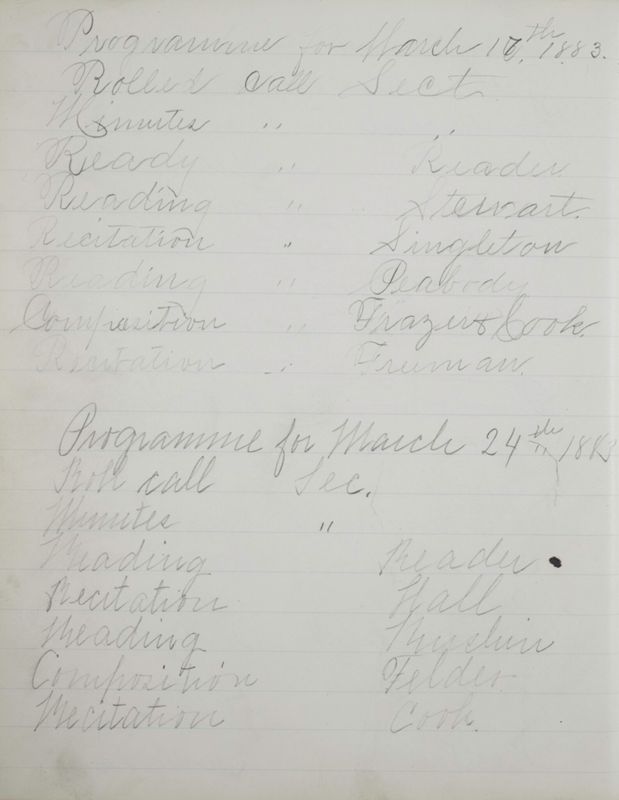 Programme for March 17th, 1883.
Rolled Call Sect.
Minutes " "
Ready " Reader
Reading " Stewart.
Recitation " Singleton
Reading " Peabody
Composition " Frazier & Cook.
Recitation " Freeman.
Programme for March 24th 1883
Roll call Sec.
Minutes "
Reading Reader
Recitation Hall
Reading
Composition Felder
Recitation Cook.